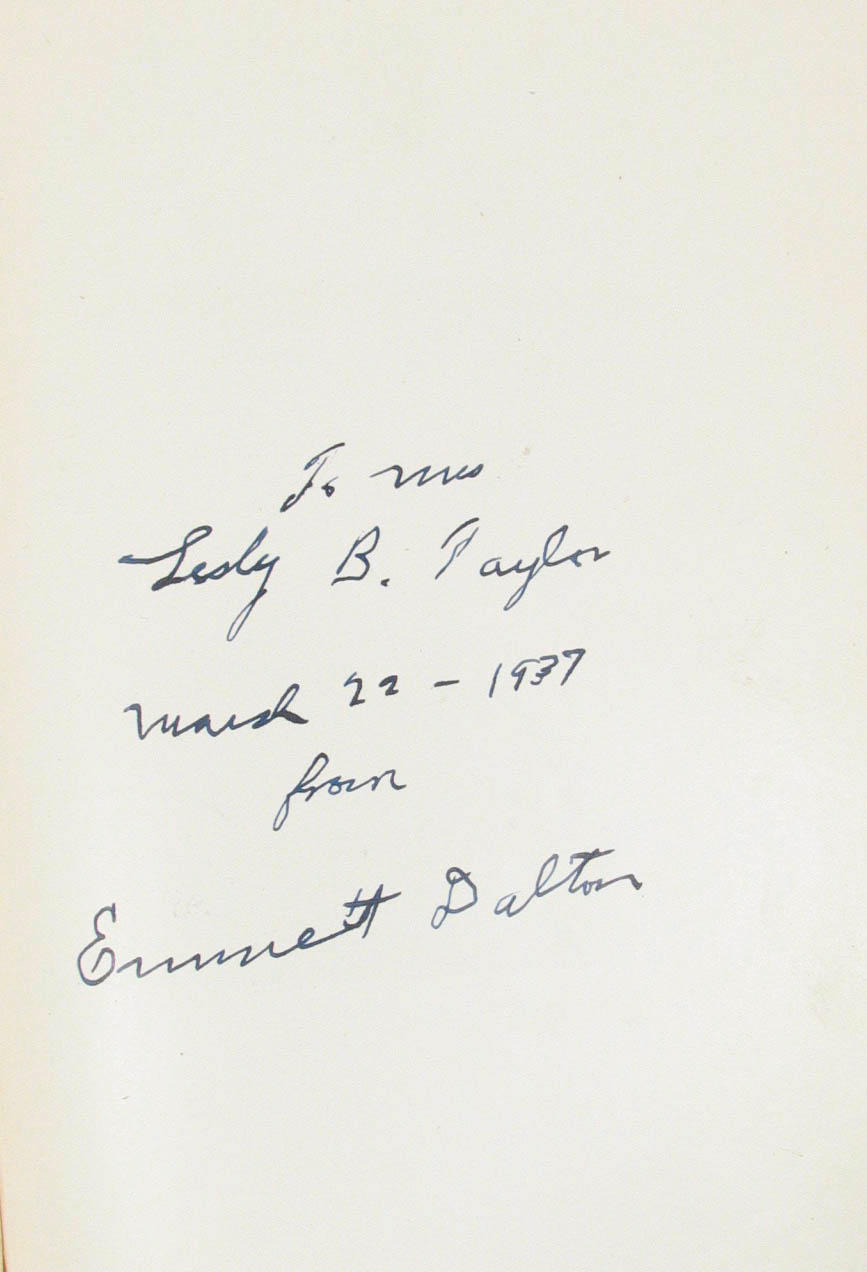 To Mrs
Lesly B. Taylor
March 22 - 1937
from
Emmett Dalton